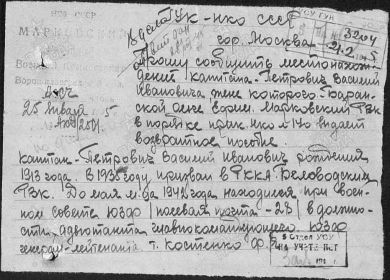 НКО СССР
МАРКОВСКИЙ
В дело
УК-НКО СССР
гор. Москва
3204
Прошу сообщить местонахож
дение капитана Петрович Василий
Ивановича жене которого Баран-
ской Елене Марковский РВК
в порядке прик. НКО № 170 выдает
возвратное пособие.
25 января 5
капитан Петрович Василий Иванович рождения
1913 года. В 193 году призван в РККА Беловодским
РВК. До мая м-ца 1942 года находился при воен-
ном совете ЮЗФ /полевая почта - 28/ в должно-
сти адъютанта главнокомандующего ЮЗФ
генерал-лейтенанта т. Костенко Ф.Я.
5 ОТДЕЛ УСУ
НА УЧЕТЕ НЕТ